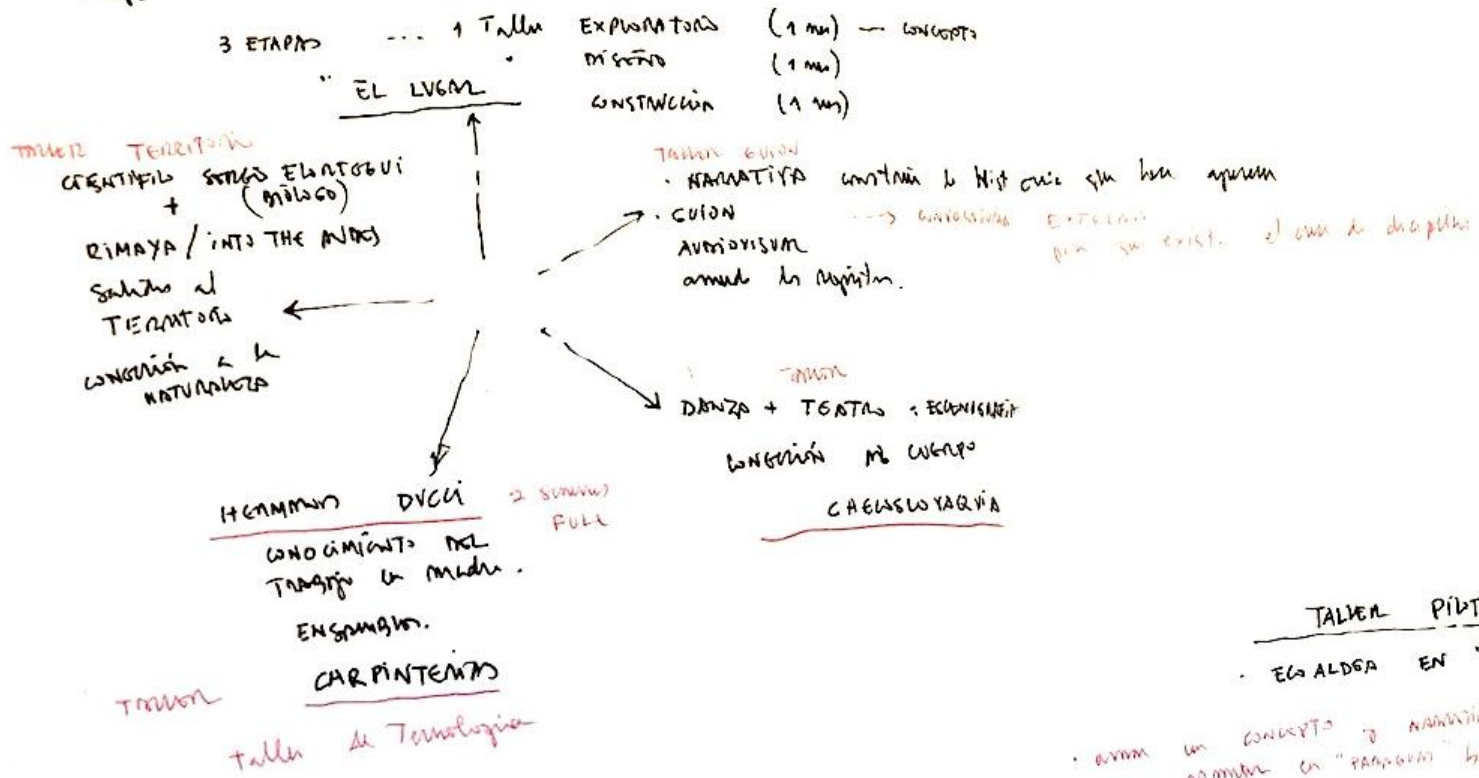 3 ETAPAS ... 1 Taller EXPLORATORIO (1 mes) — CONCEPTO
DISEÑO (1 mes)
" EL LUGAR
CONSTRUCCIÓN (1 mes)
TALLER TERRITORIO
CIENTÍFICO SERGIO ELORTEGUI
(BIÓLOGO)
+
RIMAYA / INTO THE ANDES
Salidas al
TERRITORIO
CONECCIÓN a la
NATURALEZA
TALLER GUION
· NARRATIVA construir la Historia que
· GUION
AUDIOVISUAL
TALLER
DANZA + TEATRO : ESCENOGRAFIA
CONECCIÓN AL CUERPO
CHECOSLOVAQUIA
HERMANOS DUCCI 2 semanas
FULL
CONOCIMIENTO DEL
TRABAJO en madera.
ENSAMBLES.
CARPINTERIAS
TALLER
taller de Tecnologia
TALLER PILOT
· ECO ALDEA EN
· armar un CONCEPTO y